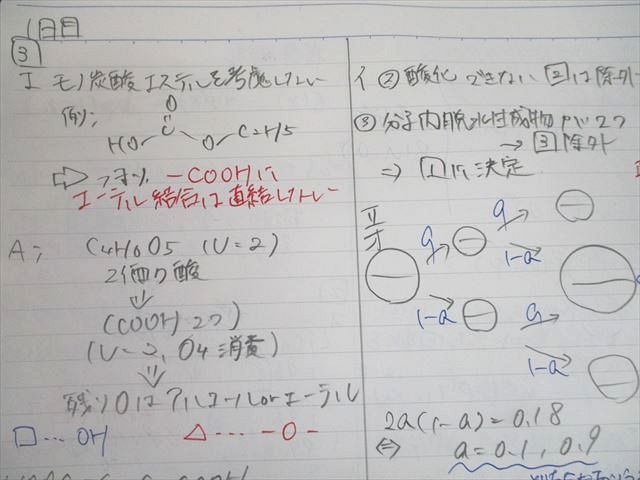 1日目
3
I モノ炭酸エステルを考慮しない
例;
O
HO C O C2H5
⇨ つまり、 -COOHに
エーテル結合は直結しない
A; C4H6O5 (U=2)
2価の酸
⇓
(COOH 2つ)
(U=2, O4 消費)
⇓
残りOはアルコールorエーテル
□… OH △… -O-
イ ② 酸化できない 2は除外
③ 分子内脱水生成物が2つ
→ 3除外
⇒ 1に決定
II
オ
a a
1-a 1-a
a
1-a
2a(1-a)=0.18
⇔ a=0.1, 0.9